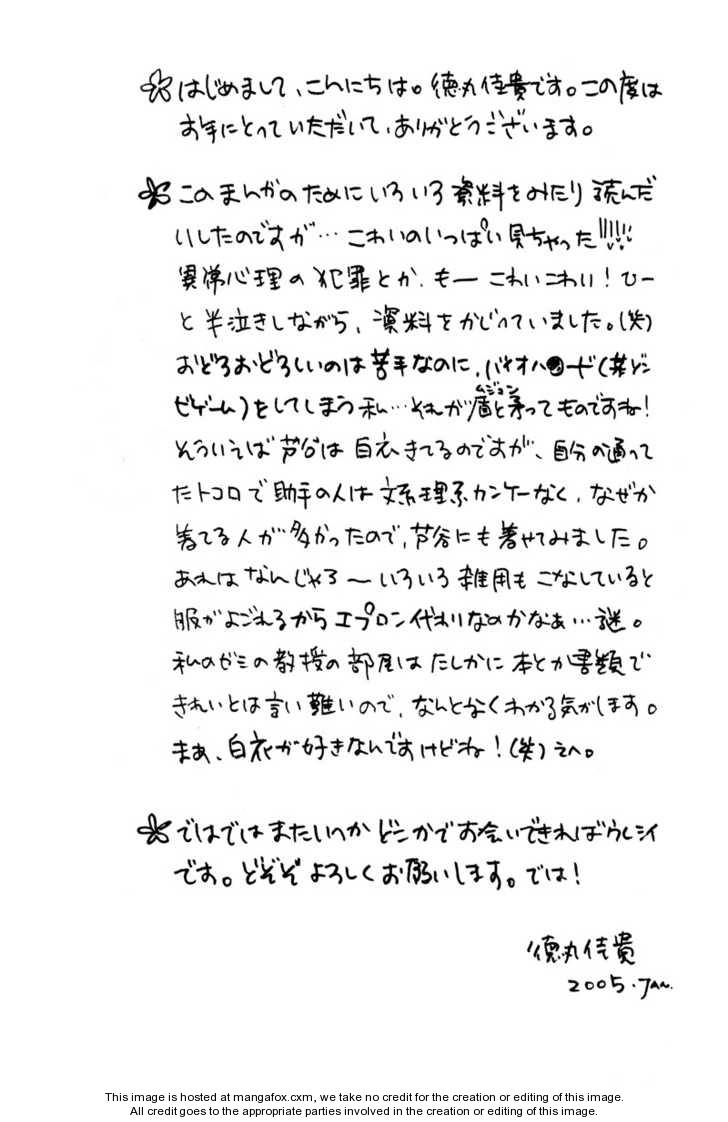 はじめまして、こんにちは。徳丸佳貴です。この度は
お手にとっていただいて、ありがとうございます。
このまんがのためにいろいろ資料をみたり読んだ
りしたのですが…こわいのいっぱい見ちゃった!!!!!
異常心理の犯罪とか、もーこわいこわい!ひー
と半泣きしながら、資料をかじっていました。(笑)
おどろおどろしいのは苦手なのに、バイオハ●ード(某ゾン
ビゲーム)をしてしまう私…それが盾と矛ってものですね!
ムジュン
そういえば芦谷は白衣きてるのですが、自分の通って
たトコロで助手の人は文系理系カンケーなく、なぜか
着てる人が多かったので、芦谷にも着せてみました。
あれはなんじゃろ〜いろいろ雑用もこなしていると
服がよごれるからエプロン代わりなのかなぁ…謎。
私のゼミの教授の部屋はたしかに本とか書類で
きれいとは言い難いので、なんとなくわかる気がします。
まあ、白衣が好きなんですけどね!(笑)えへ。
ではではまたいつかどこかでお会いできればウレシイ
です。どぞぞよろしくお願いします。では!
徳丸佳貴
2005.JAN.
This image is hosted at mangafox.cxm, we take no credit for the creation or editing of this image.
All credit goes to the appropriate parties involved in the creation or editing of this image.